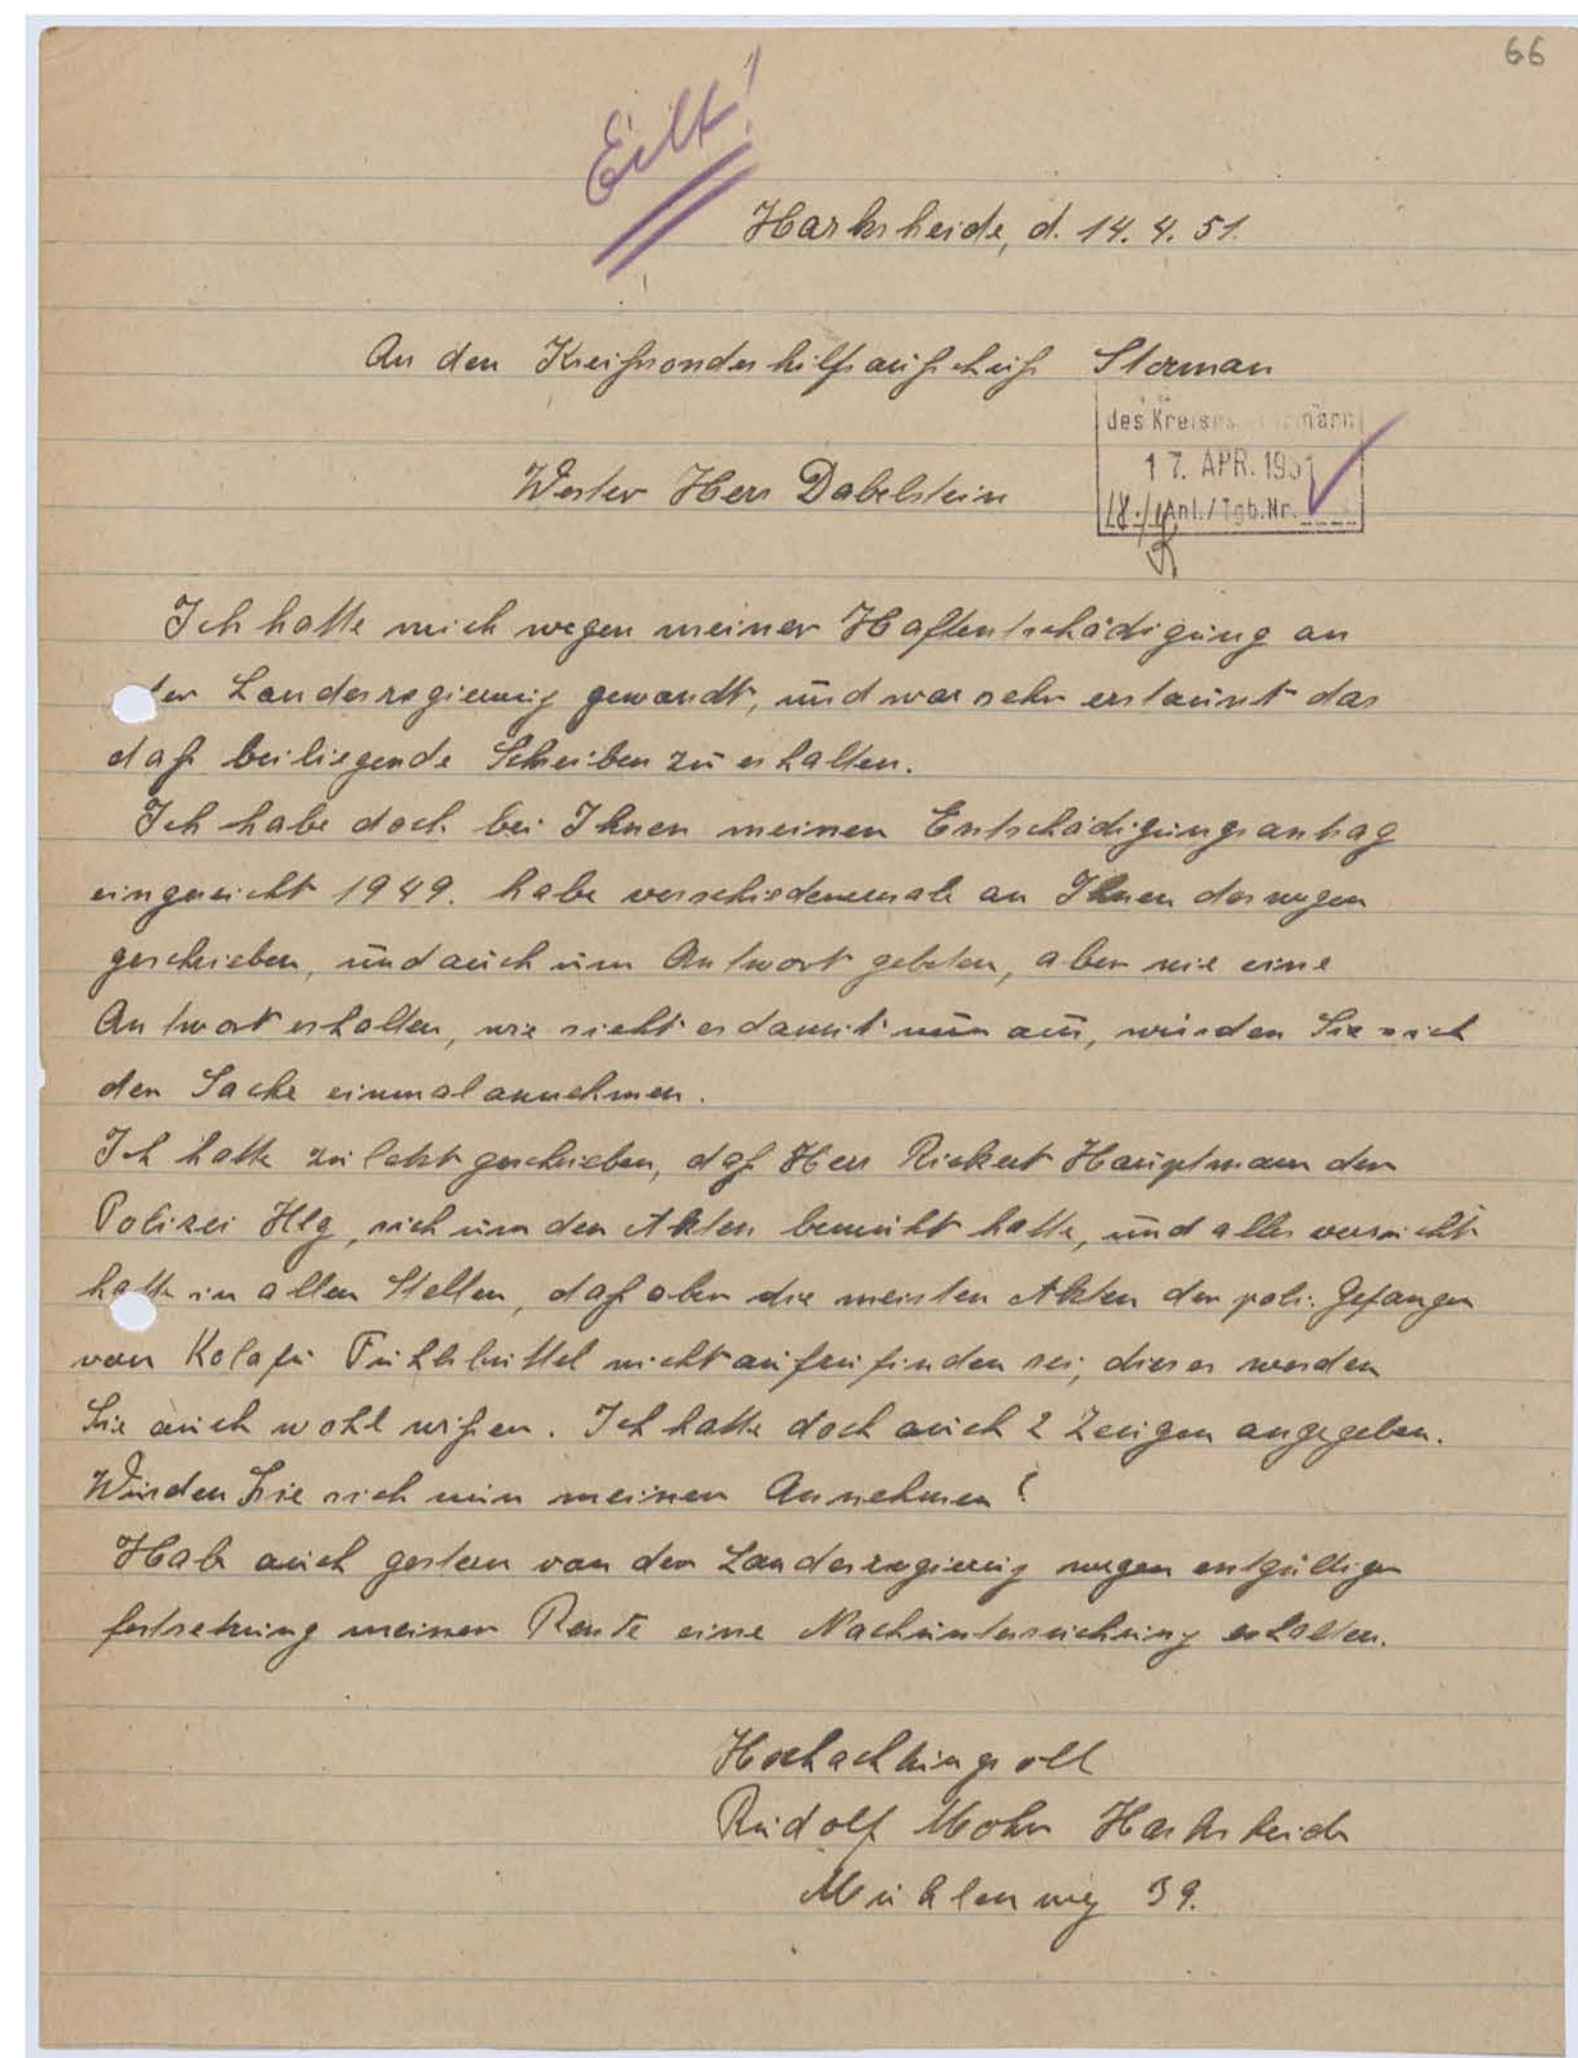 66
Eilt!
Harksheide, d. 14. 4. 51.
An den Kreißsonderhilfsaußschuß Storman
des Kreises
17. APR. 1951
Anl./Tgb.Nr.
Werter Herr Dabelstein
Ich hatte mich wegen meiner Haftentschädigung an
der Landesregierung gewandt, und war sehr erstaunt das
daß beiliegende Schreiben zu erhalten.
Ich habe doch bei Ihnen meinen Entschädigungsantrag
eingereicht 1949. habe verschiedenemale an Ihnen deswegen
geschrieben, und auch um Antwort gebeten, aber nie eine
Antwort erhalten, wie sieht es damit nun aus, würden Sie sich
der Sache einmal annehmen.
Ich hatte zuletzt geschrieben, daß Herr Rickert Hauptmann der
Polizei Hbg, sich um den Akten bemüht hatte, und alles versucht
hatte in allen Stellen, daß aber die meisten Akten der poli. Gefangen
von Kolafu Fuhlsbüttel nicht aufzufinden sei, dieses werden
Sie auch wohl wißen. Ich hatte doch auch 2 Zeugen angegeben.
Würden Sie sich nun meiner Annehmen?
Habe auch gestern von der Landesregierung wegen entgültigen
festsetzung meiner Rente eine Nachuntersuchung erhalten.
Hochachtungsvoll
Rudolf Mohr Harksheide
Mühlenweg 39.